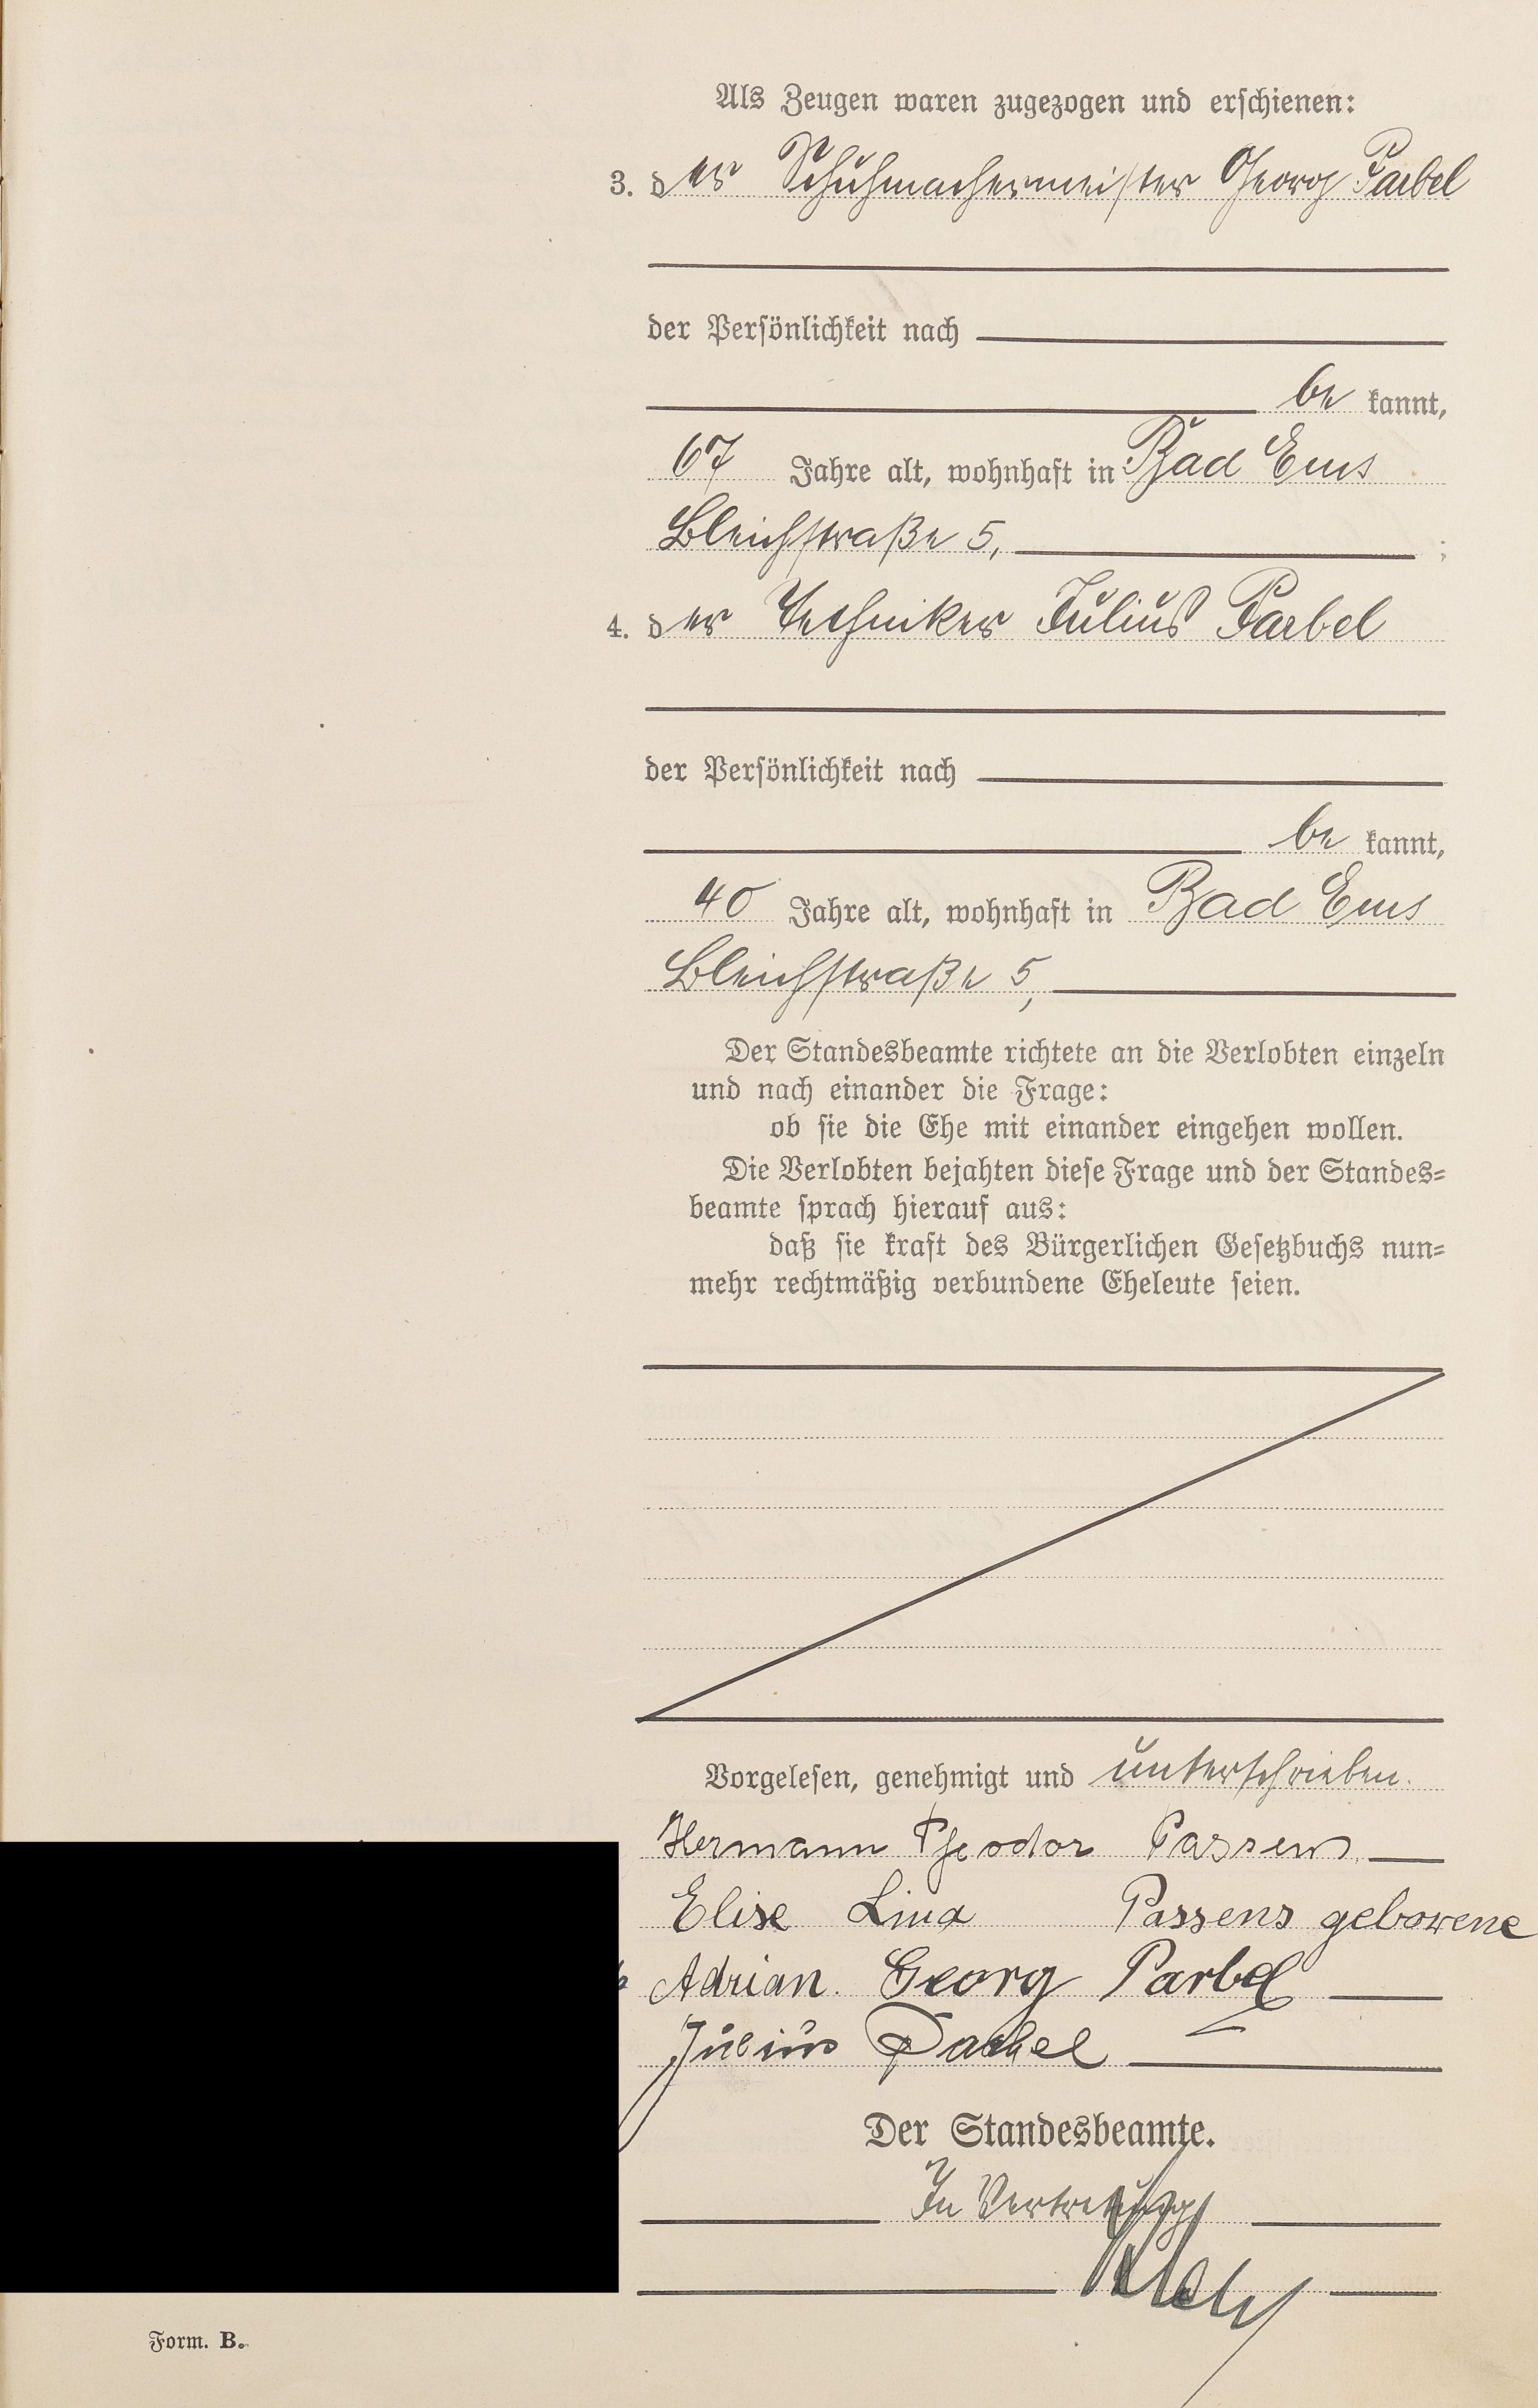 Als Zeugen waren zugezogen und erschienen:
3. der Schuhmachermeister Georg Parbel
der Persönlichkeit nach
be kannt,
67 Jahre alt, wohnhaft in Bad Ems
Bleichstraße 5, ;
4. der Techniker Julius Parbel
der Persönlichkeit nach
be kannt,
40 Jahre alt, wohnhaft in Bad Ems
Bleichstraße 5,
Der Standesbeamte richtete an die Verlobten einzeln
und nach einander die Frage:
ob sie die Ehe mit einander eingehen wollen.
Die Verlobten bejahten diese Frage und der Standes=
beamte sprach hierauf aus:
daß sie kraft des Bürgerlichen Gesetzbuchs nun=
mehr rechtmäßig verbundene Eheleute seien.
Vorgelesen, genehmigt und unterschrieben.
Hermann Theodor Passens
Elise Lina Passens geborene
Adrian. Georg Parbel
Julius Parbel
Der Standesbeamte.
In Vertretung
Form. B.